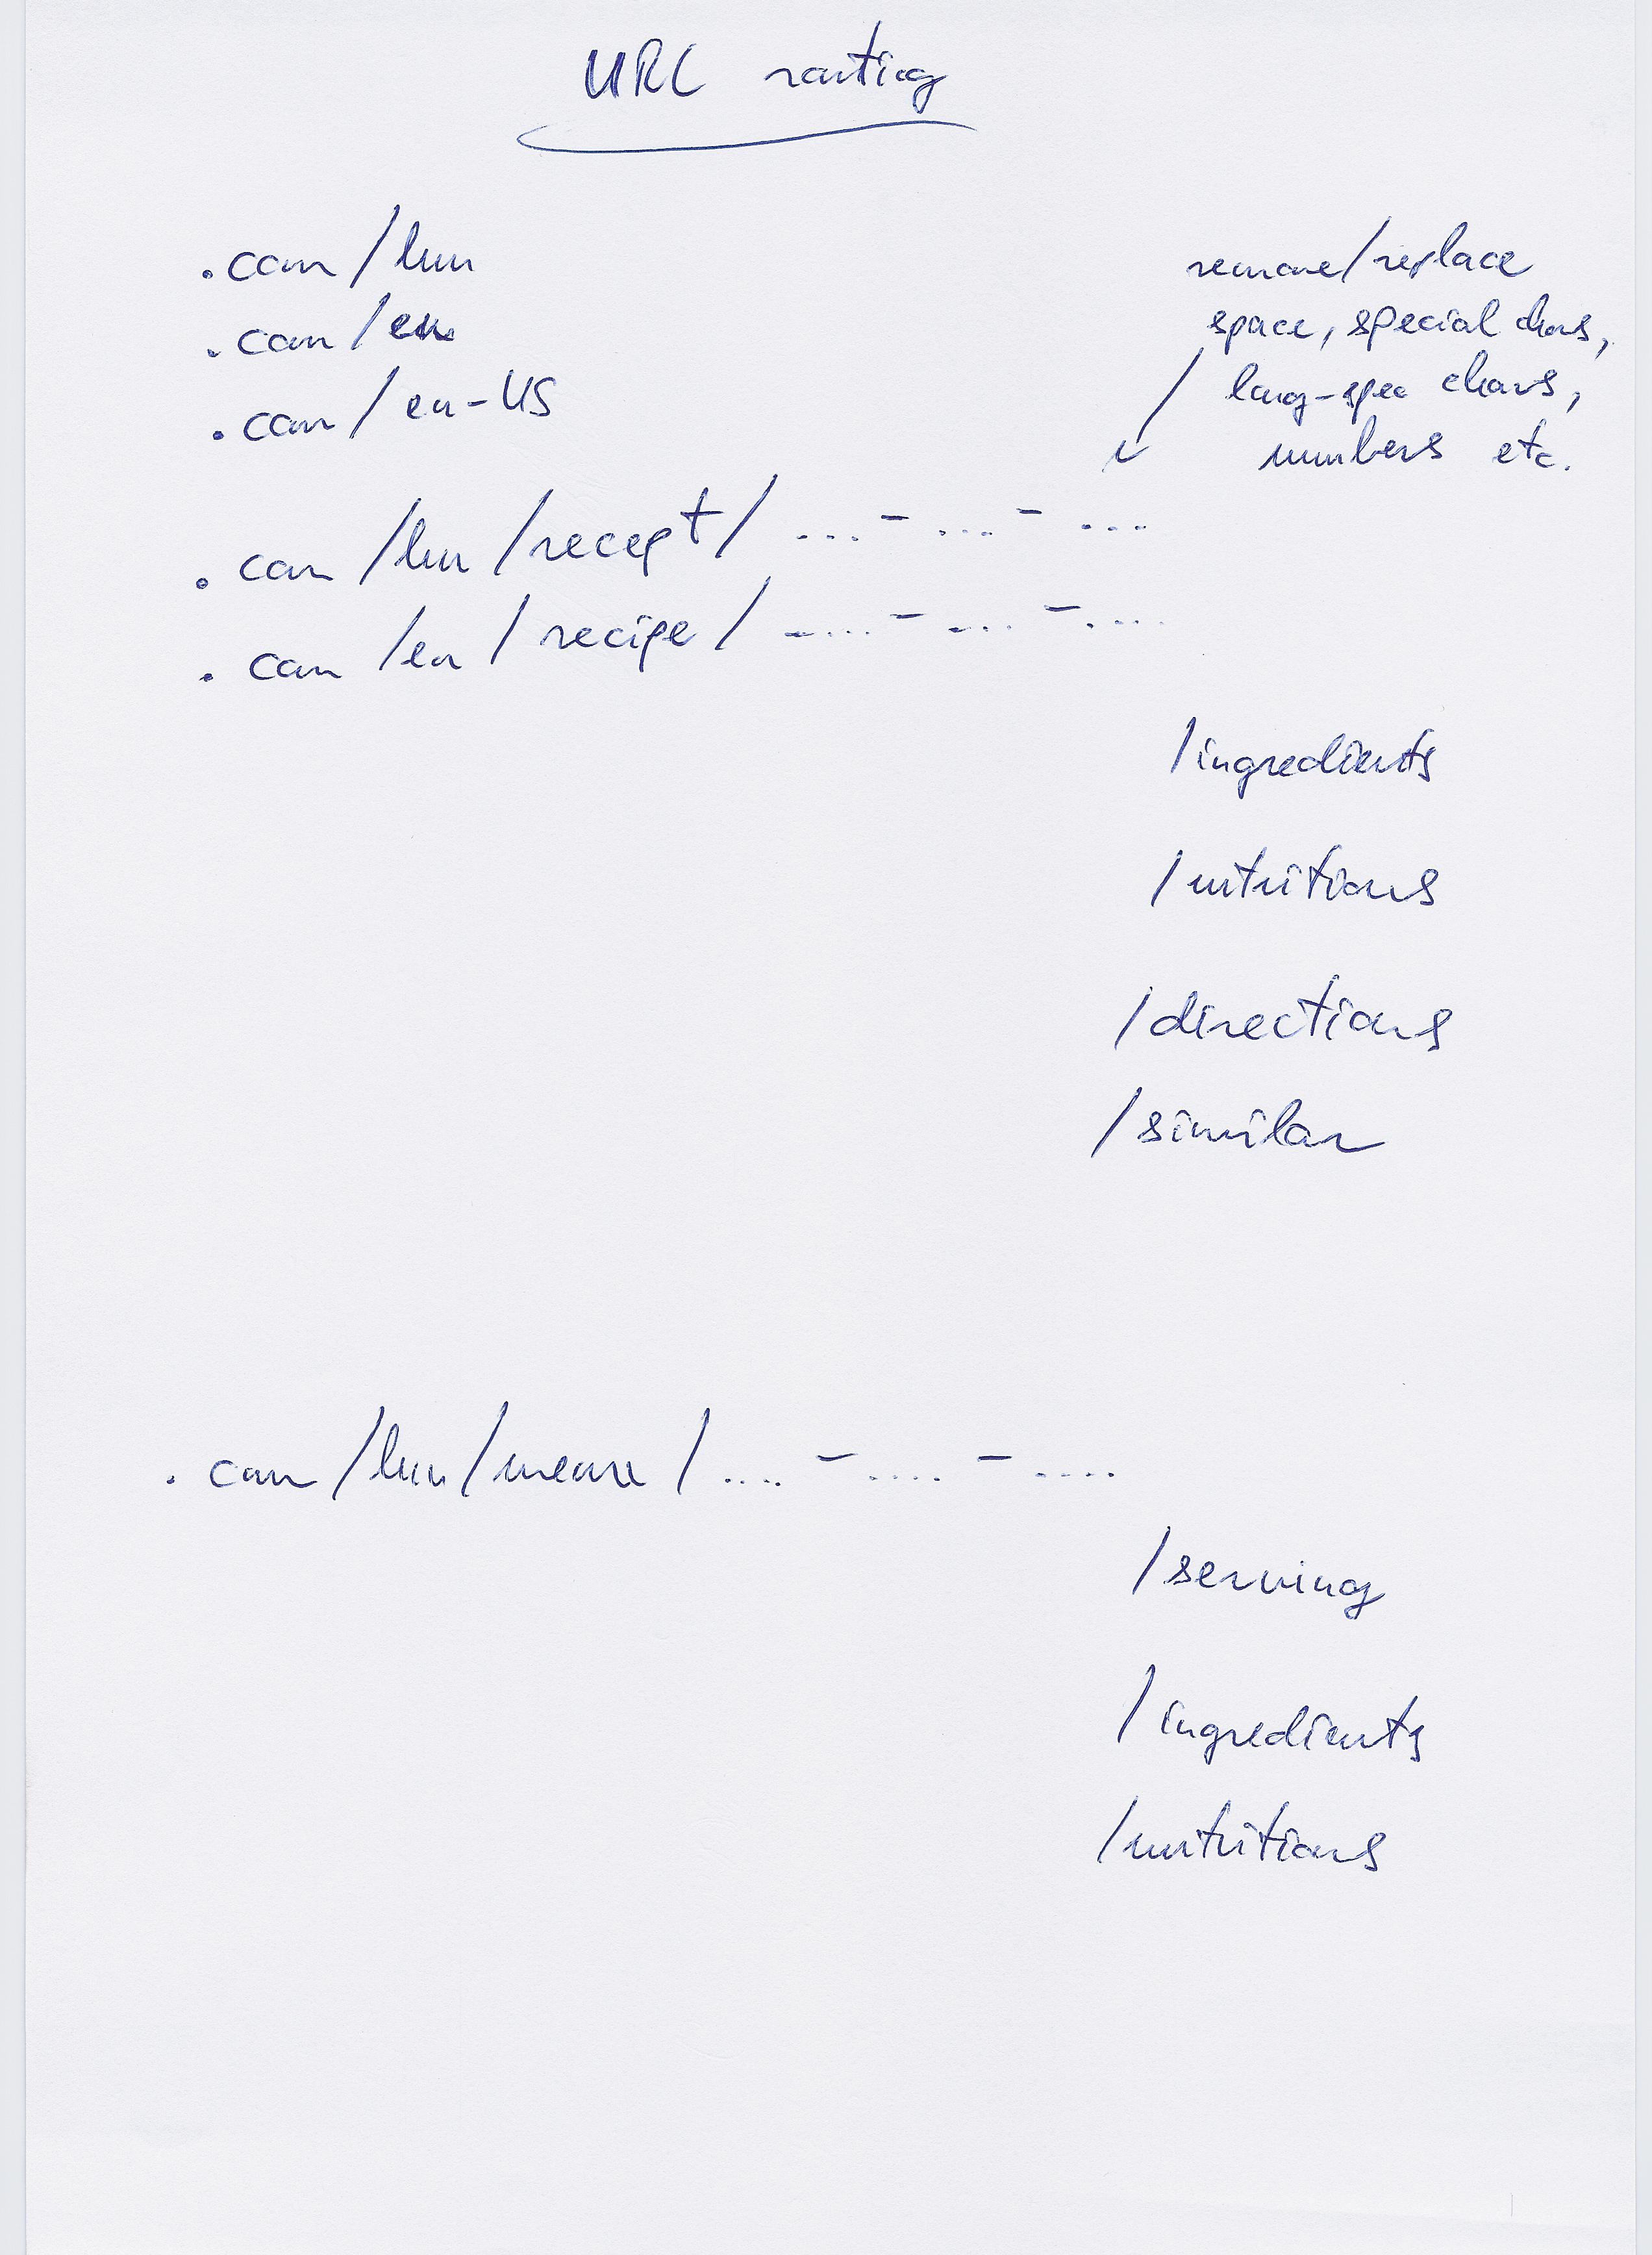 URL routing
.com/hu
.com/en
.com/en-US
remove/replace
space, special chars,
lang-spec chars,
numbers etc.
.com/hu/recept/ ...-...-...
.com/en/recipe/ ...-...-....
/ingredients
/nutritions
/directions
/similar
.com/hu/menu/....-....-....
/serving
/ingredients
/nutritions